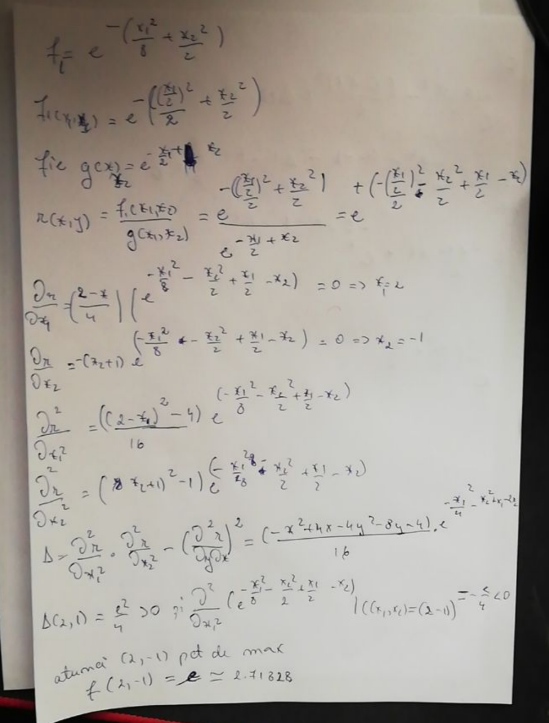 f₁ = e^-(x₁²/8 + x₂²/2)
f₁(x₁,x₂) = e^-((x₁/2)²/2 + x₂²/2)
Fie g(x) = e^-x₁/2 + x₂
r(x,y) = f₁(x₁,x₂)/g(x₁,x₂) = e^-((x₁/2)²/2 + x₂²/2) / e^-x₁/2 + x₂ = e^+(-(x₁/2)²/2 - x₂²/2 + x₁/2 - x₂)
∂r/∂x₁ = (2-x/4)(e^-x₁²/8 - x₂²/2 + x₁/2 - x₂) = 0 => x₁=2
∂r/∂x₂ = -(x₂+1) e^(-x₁²/8 - x₂²/2 + x₁/2 - x₂) = 0 => x₂=-1
∂²r/∂x₁² = ((2-x₁)²-4)/16 e^(-x₁²/8 - x₂²/2 + x₁/2 - x₂)
∂²r/∂x₂² = ((x₂+1)²-1) e^(-x₁²/8 - x₂²/2 + x₁/2 - x₂)
Δ = ∂²r/∂x₁² · ∂²r/∂x₂² - (∂²r/∂y∂x)² = (-x²+4x-4y²-8y-4)/16 · e^-x₁²/4 - x₂²+x₁-2x₂
Δ(2,1) = e²/4 >0 și ∂²/∂x₁² (e^-x₁²/8 - x₂²/2 + x₁/2 - x₂) |((x₁,x₂)=(2-1)) = -e/4 <0
atunci (2,-1) pct de max
f(2,-1) = e ≃ 2.71828